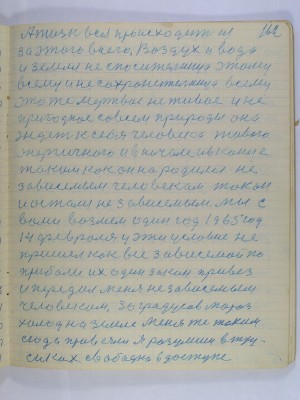 162
А жизнь вся происходит и
за этого всего, Воздух и вода
и земля не способствуют этому
всему и не сохранетелница всему
это те мертвые не живое и не
пригодное совсем природы она
ждет к себя человека живого
энергичного и в начале и в конце
таким как он народился не
зависемым человеком таком
и остался не зависемым. мы с
вами возмем один год 1965 год
14 февроля и эти условие не
пришли как все зависемое по
прибали их один закон привез
и передил меня не зависемым
человеком, 30 градусов мороз
холод на земле меня же таким
сюда привезли я разумии в тру-
сиках. свабодно в доступе